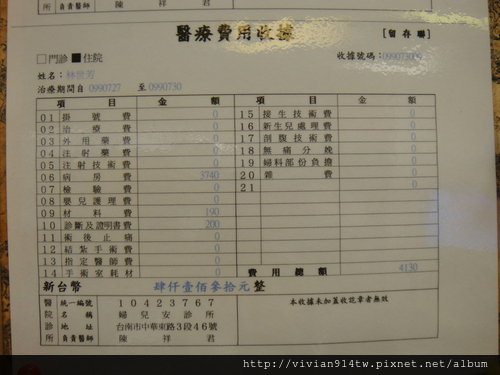 負責醫師 陳 祥 君
醫療費用收據
[留存聯]
□門診 ■住院
收據號碼：099073000
姓名：
治療期間自 0990727 至 0990730
項 目 金 額 項 目 金 額
01 掛號費 0 15 接生技術費 0
02 治療費 0 16 新生兒處理費 0
03 外用藥費 0 17 剖腹技術費 0
04 注射藥費 0 18 無痛分娩 0
05 注射技術費 0 19 婦科部份負擔 0
06 病房費 3740 20 雜費 0
07 檢驗費 0 21 0
08 嬰兒護理費 0
09 材料費 190
10 診斷及證明書費 200
11 術後止痛 0
12 結紮手術費 0
13 指定醫師費 0
14 手術室耗材 0 費用總額 4130
新台幣 肆仟壹佰參拾元 整
醫院診所
統一編號 10423767
名稱 婦兒安診所
地址 台南市中華東路3段46號
負責醫師 陳 祥 君
本收據未加蓋收訖章者無效
http://vivian914tw.pixnet.net/album